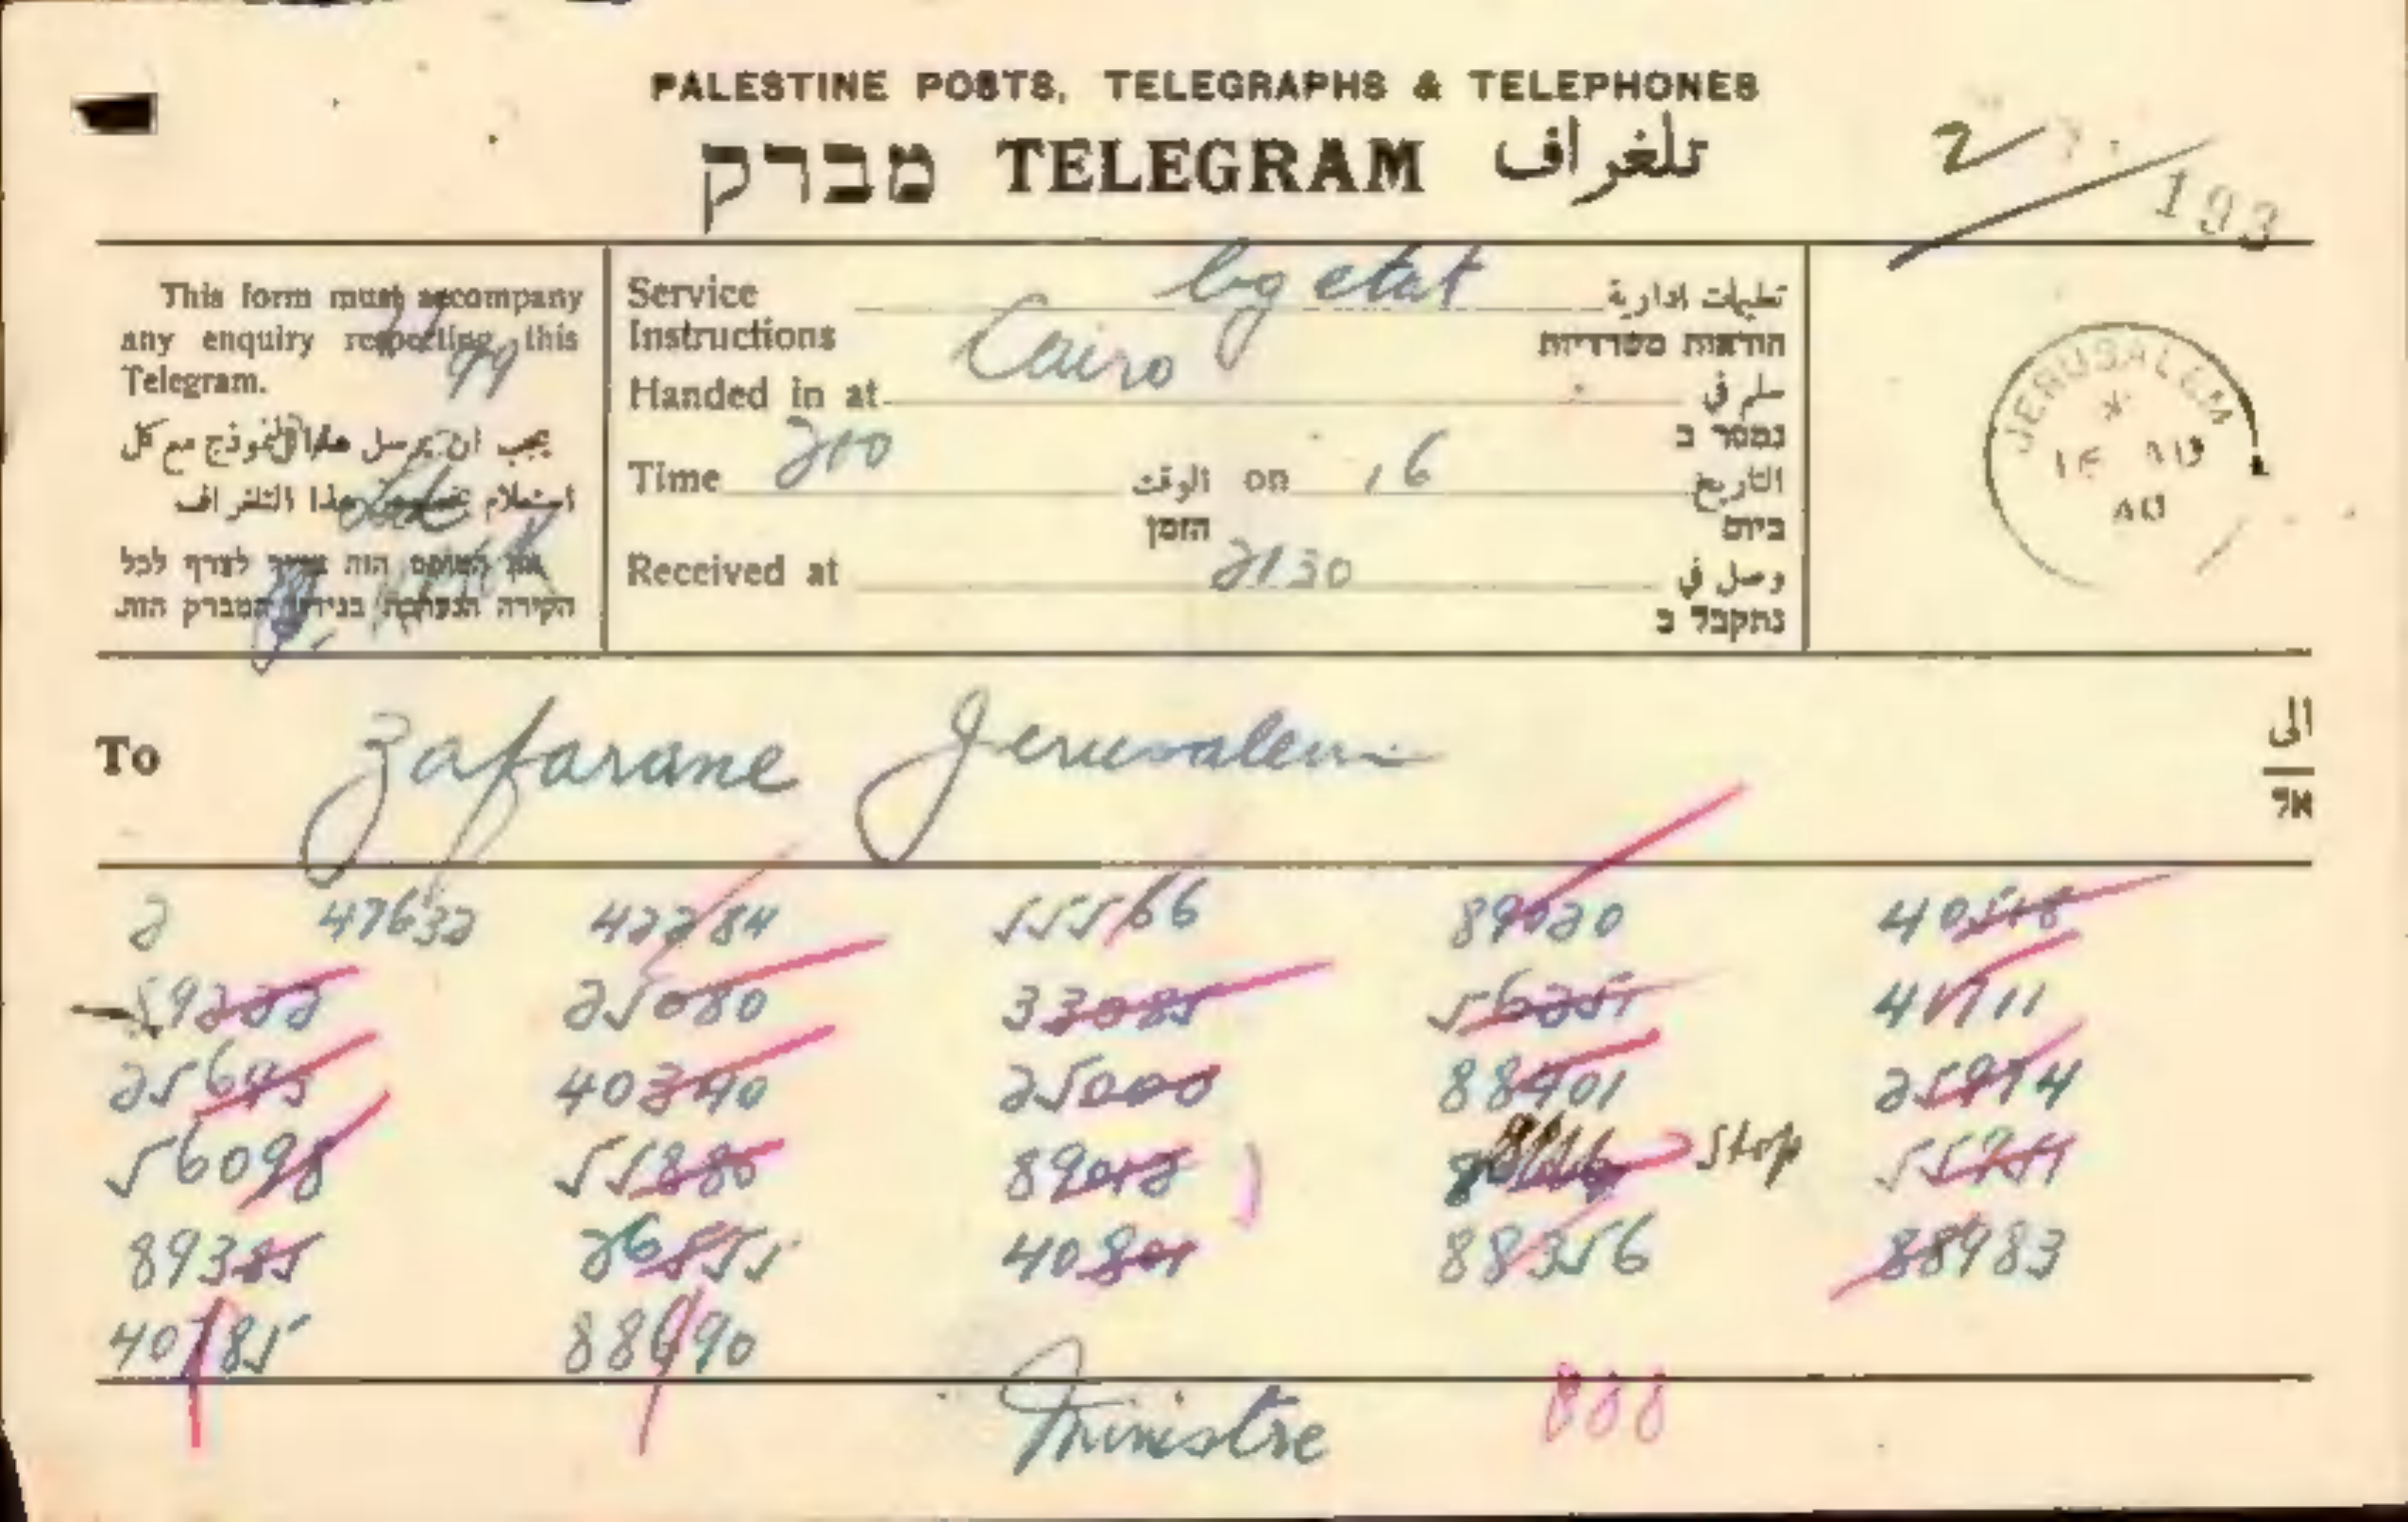 PALESTINE POSTS, TELEGRAPHS & TELEPHONES
מברק TELEGRAM تلغراف
2
193
This form must accompany
any enquiry respecting this
Telegram.
99
يجب ان يرسل هذا النموذج مع كل
استعلام هذا التلغراف
הטופס הזה צריך לצרף לכל
חקירה הנערכת בנידון המברק הזה.
Service Instructions bg etat تعليمات ادارية
הוראות משרדיות
Handed in at Cairo سلم في
נמסר ב
Time 200 الوقت on 16 التاريخ
הזמן ביום
Received at 2130 وصل في
נתקבל ב
JERUSALEM
16 AU
40
To Zafarane Jerusalem الى
אל
2 47632 42284 55566 89020 40518
59222 25080 33085 56251 41711
25695 40390 25000 88901 25974
56098 55880 89018 stop
89385 26855 40801 88356 88983
40785 88690
Ministre 888